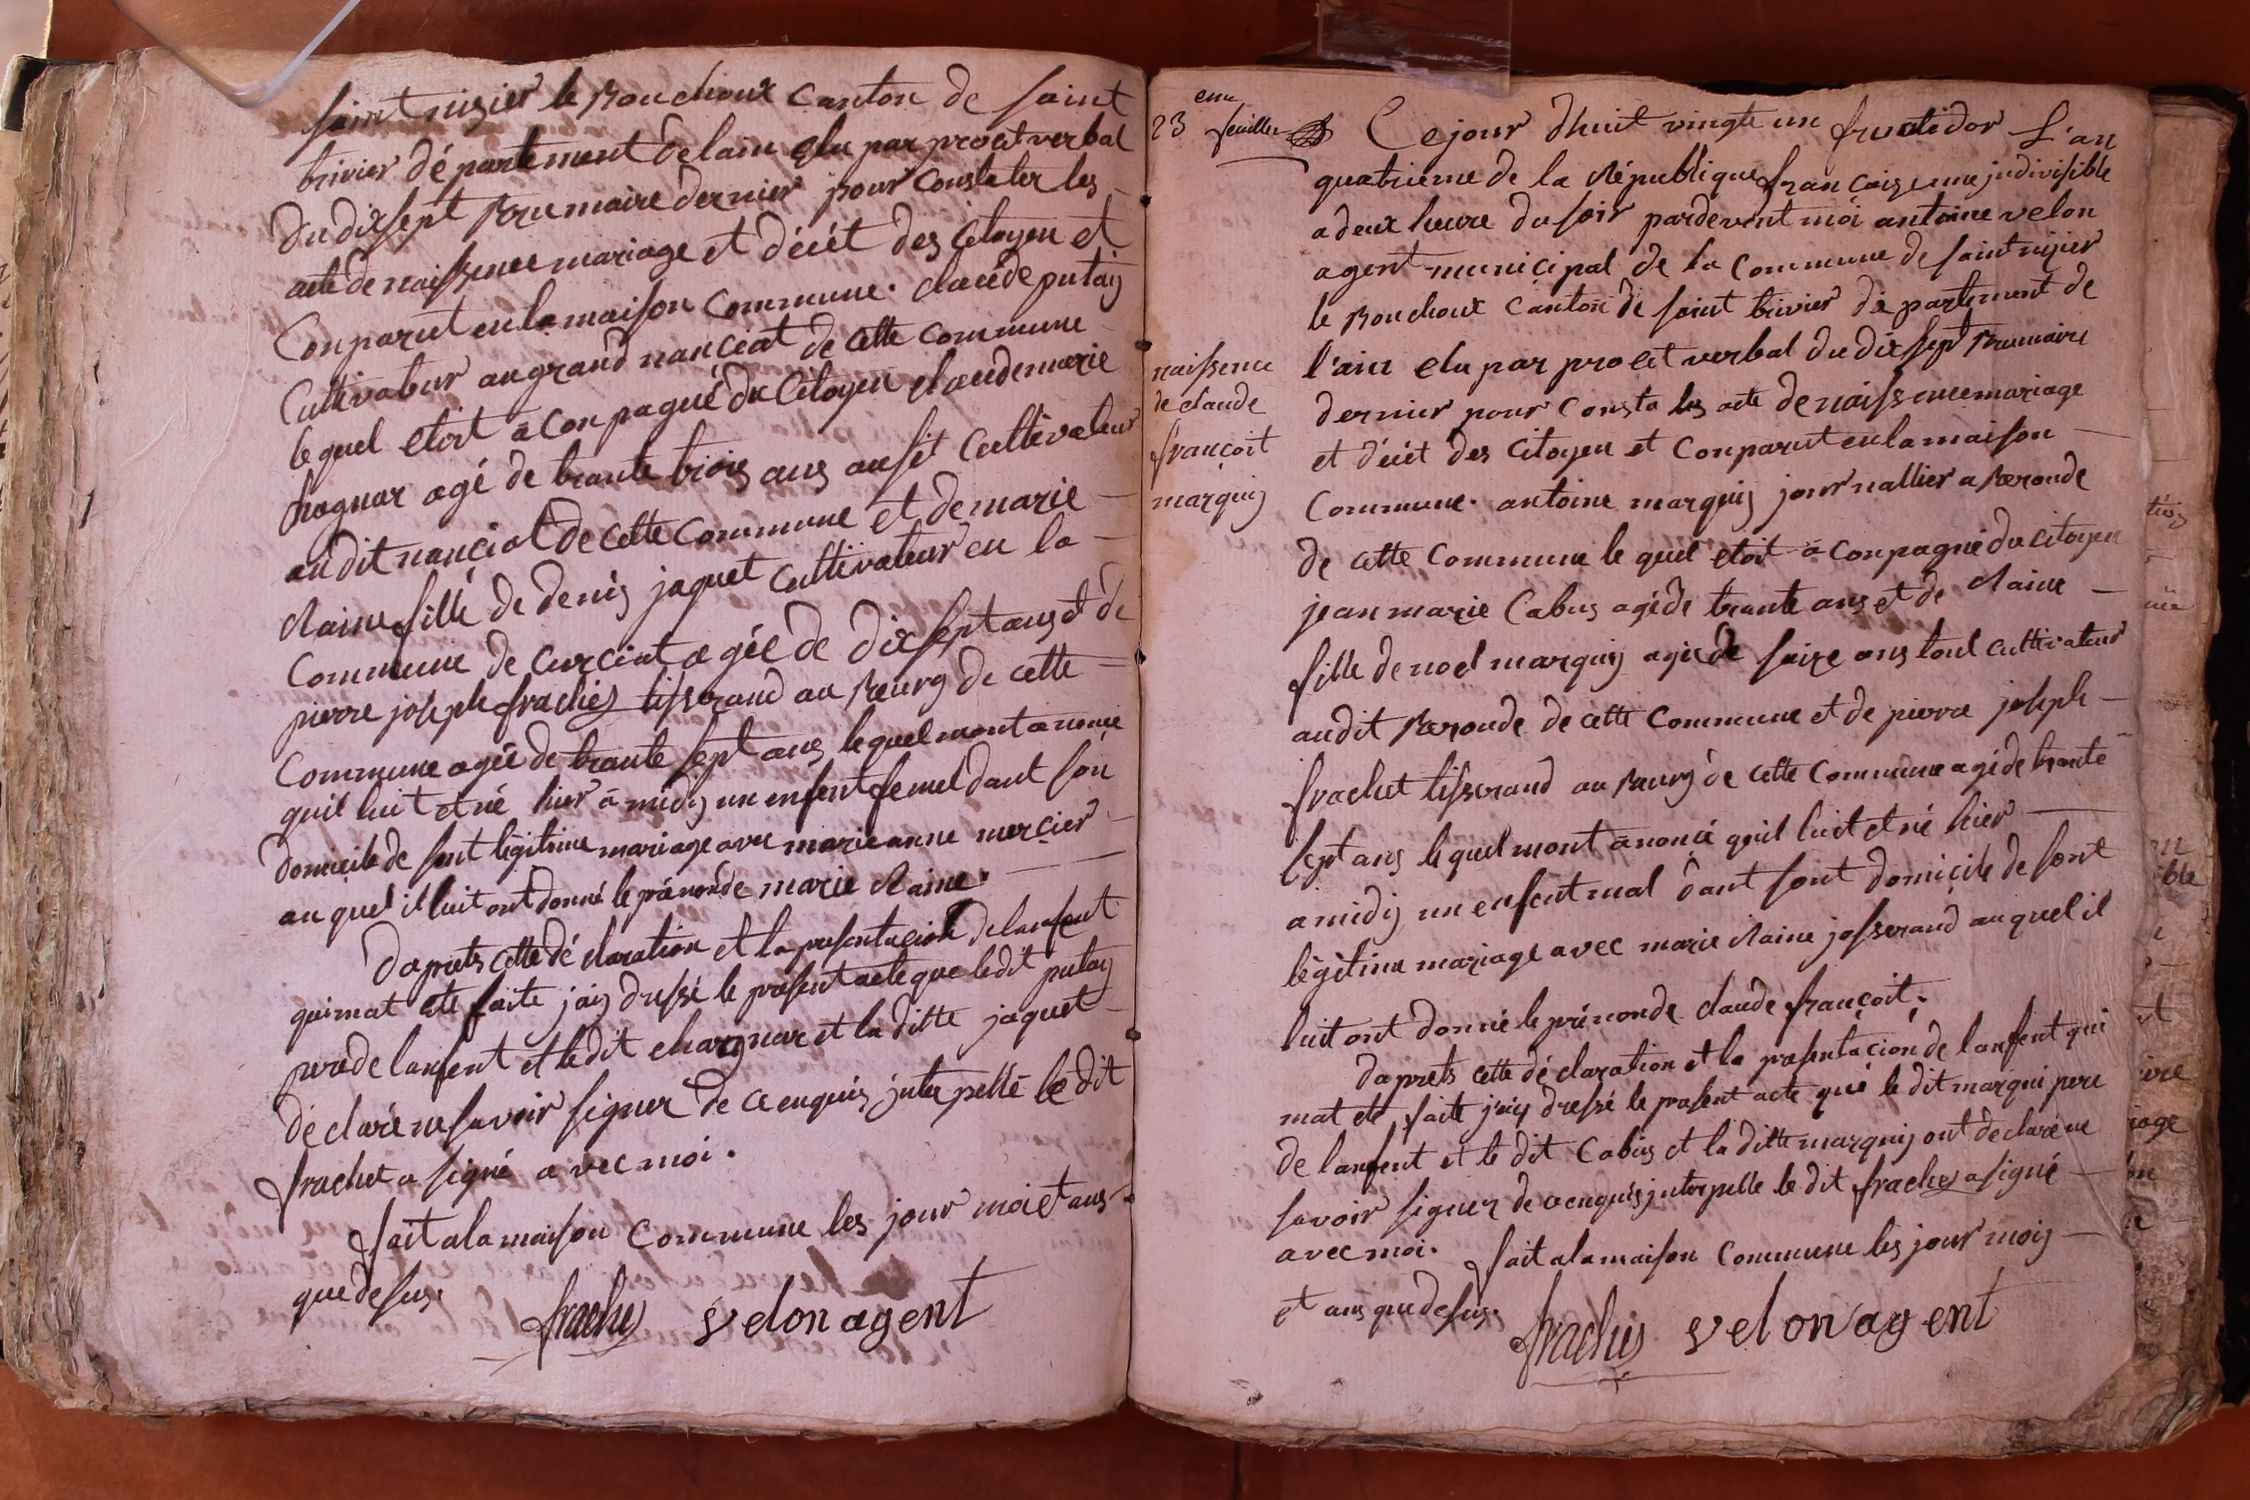 saint nisier le Bouchoux canton de saint
trivier département de lain elu par proçet verbal
du dixsept Brumaire dernier pour constater les
acte de naissence mariage et décét des citoyen et
Conparut en la maison commune. claude putay
Cultivateur au grand nanciat de cette commune
le quel etoit aconpagné du citoyen claude marie
chagnar agé de trante trois ans ausit cultivateur
au dit nanciat de cette commune et de marie
claine fille de denis jaquet cultivateur en la
commune de curciat agée de dix sept ans et de
pierre joseph frachey tisserand au Bourg de cette
commune agée de trante sept ans le quel mont anoncé
quil luit et né hier a midy un enfent femel dant son
domicile de sent légitime mariage avec marie anne mercier
au quel il luit ont donné le prénon de marie claine.
daprets cette déclaration et la presentacion de lanfent
qui mat ete faite jay dressé le present acte que le dit putay
pere de lanfent et le dit chagnar et la ditte jaquet
déclaré ne savoir signer de ce enquis interpellé le dit
frachet a signé avec moi.
fait a la maison commune les jour moi et ans
que desus.
frachey velon agent
23 eme feuillet
naissence
de claude
françoit
marquis
Ce jour dhuit vingte un fructidor L'an
quatrieme de la République françaizenne jndivisible
a deux heure du soir pardevent moi antoine velon
agent municipal de la commune de saint nizier
le Bouchoux canton de saint trivier département de
l'ain elu par procet verbal du dix sept Brumaire
dernier pour consta les acte de naissence mariage
et décét des citoyen et conparut en la maison
commune. antoine marquis journallier a Beronde
de cette commune le quel etoit aconpagné du citoyen
jean marie Cabus agé de trante ans et de claine
fille de noel marquis agée de saize ans tout cultivateur
au dit Beronde de cette commune et de pierre joseph
frachet tisserand au Bourg de cette commune agé de trante
sept ans le quel mont anoncé quil luit et né hier
a midy un enfent mal dant sont domicile de sont
légitime mariage avec marie claine josserand au quel il
luit ont donné le prénon de claude françoit.
daprets cette déclaration et la presentacion de lanfent qui
mat ete faite jaiy dressé le present acte que le dit marqui pere
de lanfent et le dit Cabus et la ditte marquis ont declaré ne
savoir signer de ce enquis interpelle le dit frachey a signé
avec moi. fait a la maison commune les jour mois
et ans que desus.
frachey velon agent